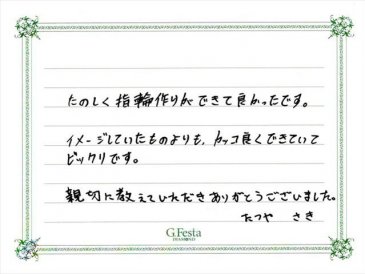 たのしく指輪作りができて良かったです。
イメージしていたものよりも、カッコ良くできていて
ビックリです。
親切に教えていただきありがとうございました。
たつや さき
G.Festa
DIAMOND